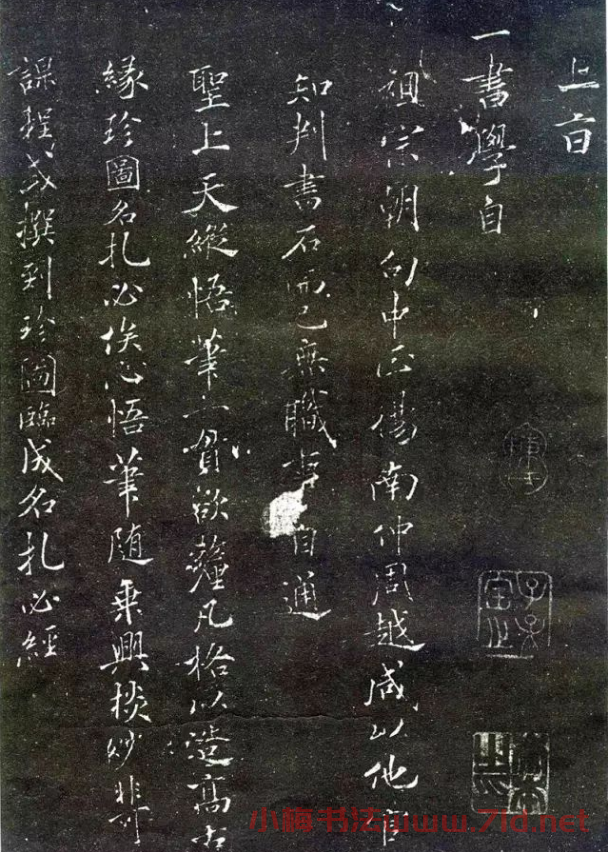 上旨
一書學自
祖宗朝句中正楊南仲周越咸以他官
知判書石而已無職事自通
聖上天縱悟筆一貫欲離凡格以造高古
緣珍圖名札必俟心悟筆隨乘興掞妙非
課程或撰到珍圖臨成名札必經
子孫
寶之
小梅书法www.7id.net